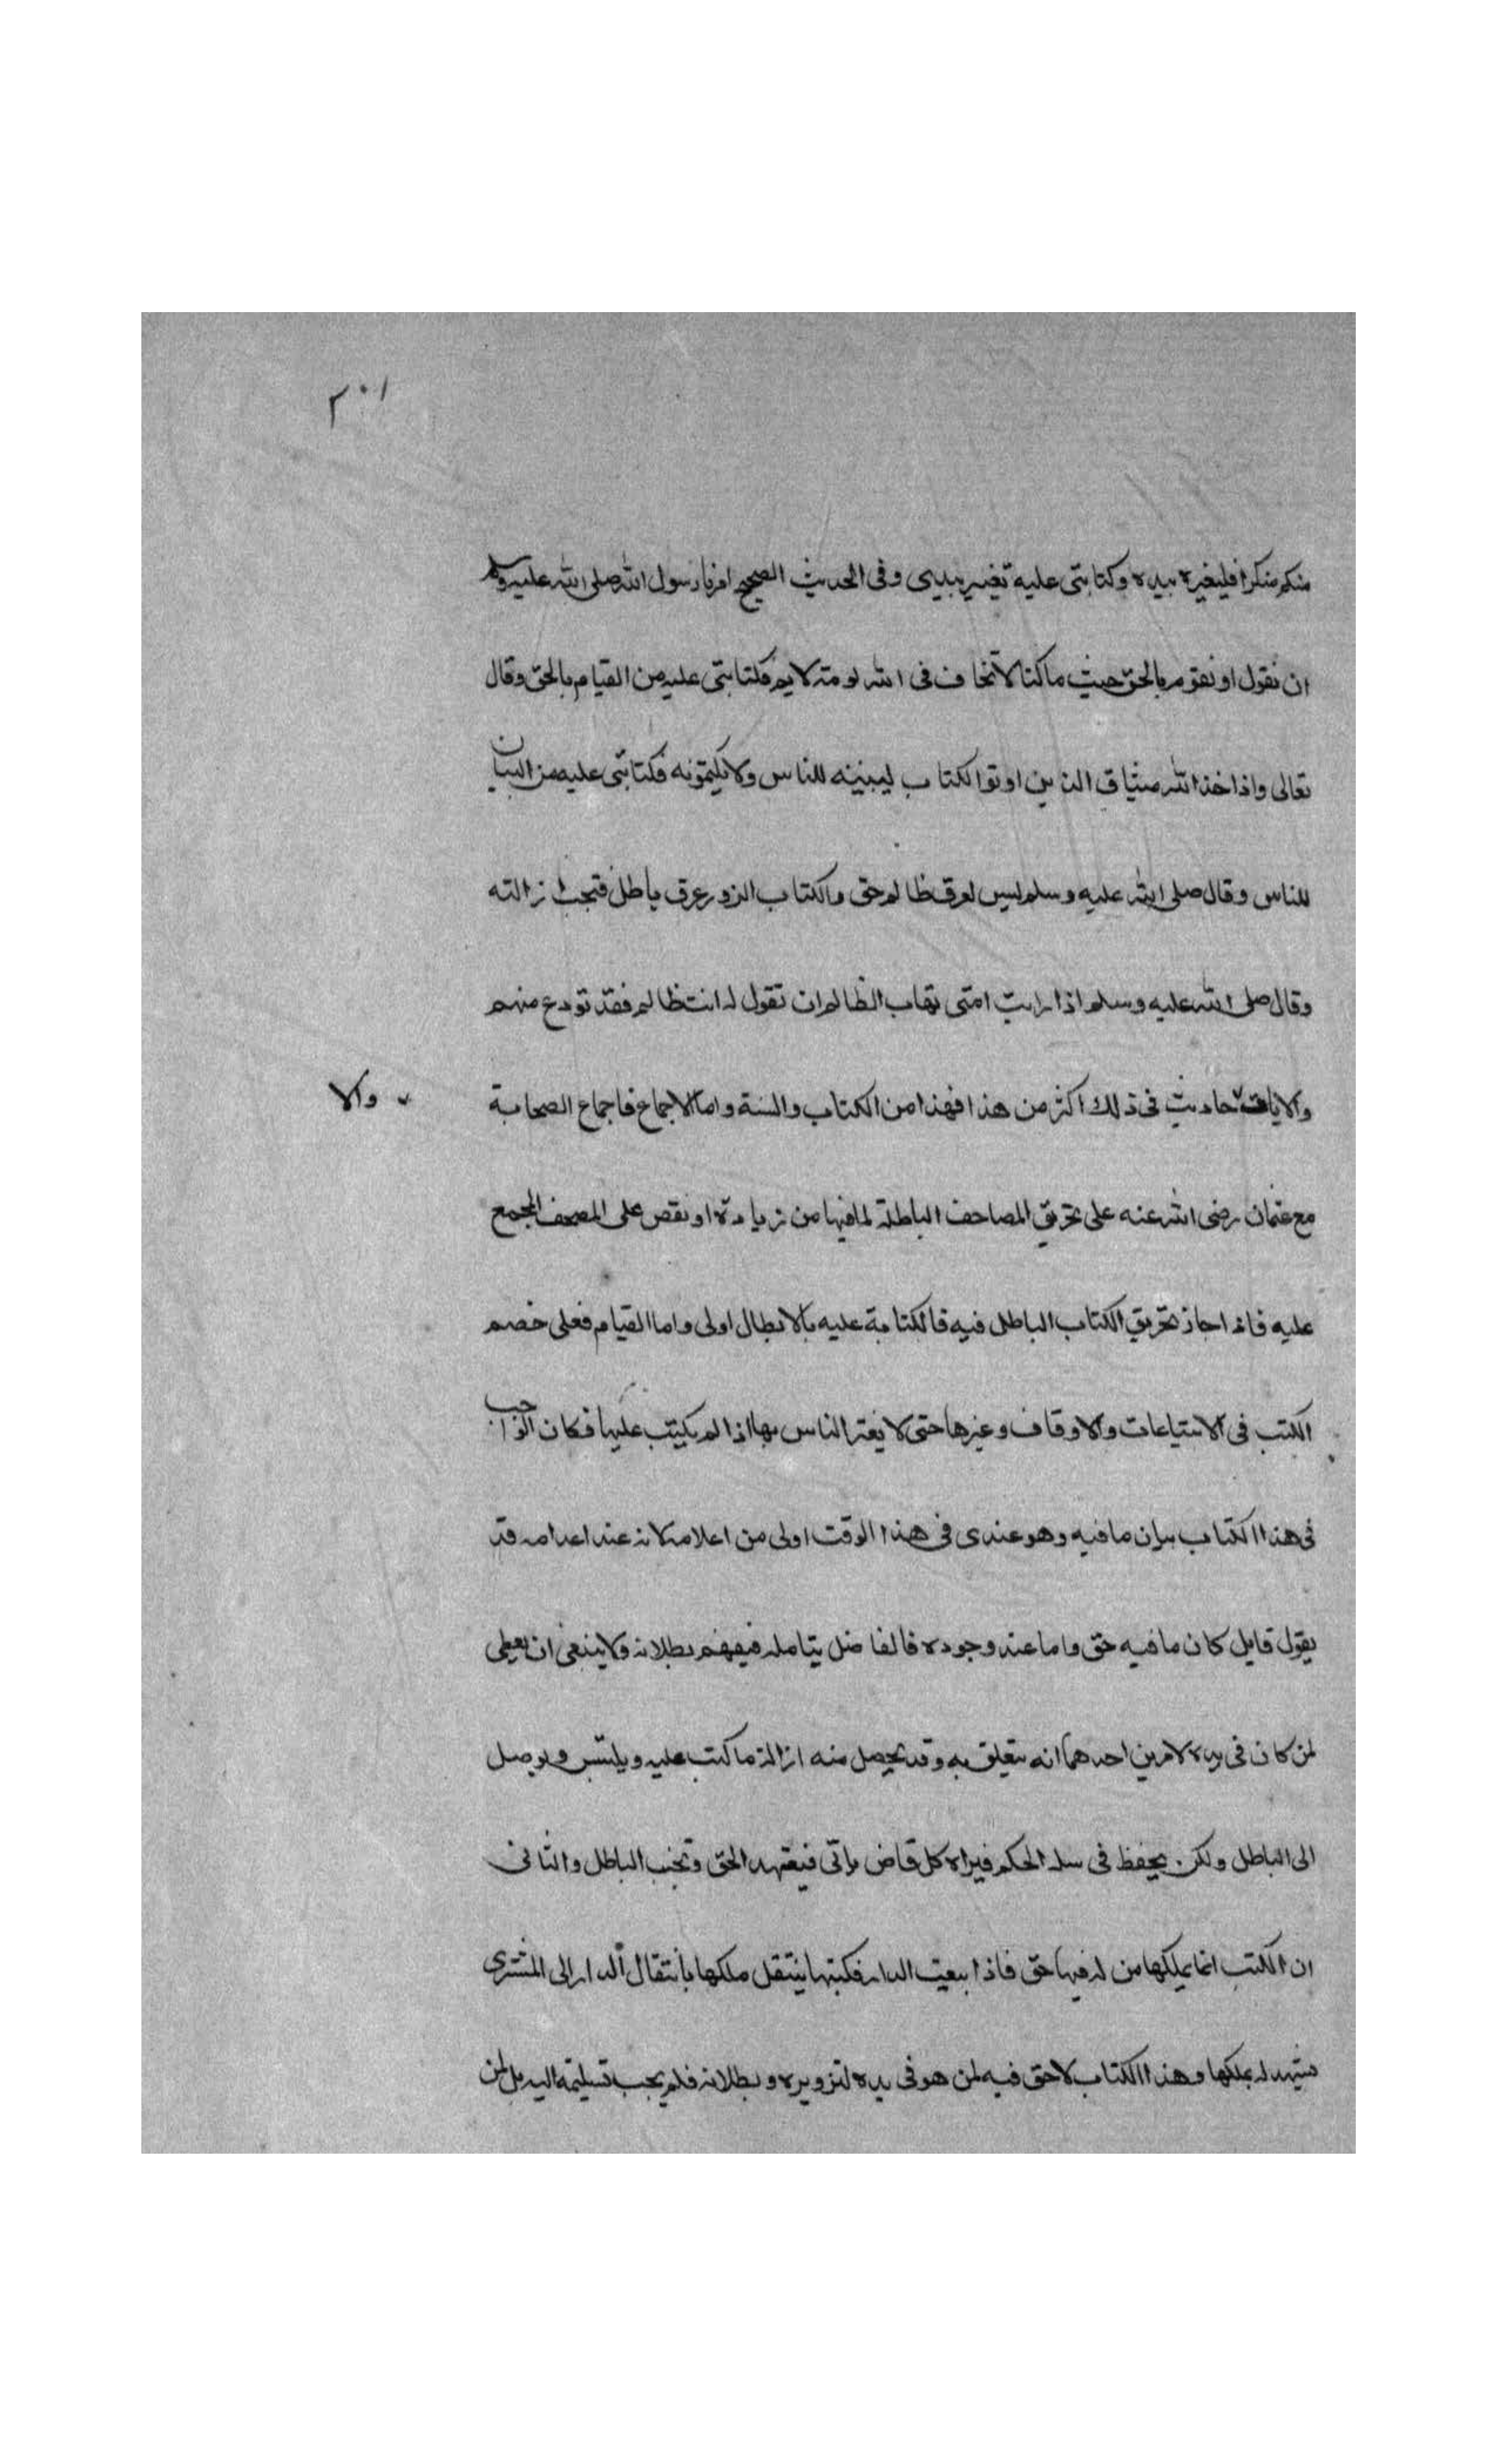 ٢٠١
منكم منكرا فليغيره بيده وكتابتى عليه تغيير بيدى وفى الحديث الصحيح امرنا رسول الله صلى الله عليه وسلم
ان نقول او نقوم بالحق حيث ما كنا لا نخاف فى الله لومة لايم فكتابتى عليه من القيام بالحق وقال
تعالى واذ اخذ الله ميثاق الذين اوتوا الكتاب ليبيننه للناس ولا يكتمونه فكتابتى عليه من البيان
للناس وقال صلى الله عليه وسلم ليس لعرق ظالم حق والكتاب الزور عرق باطل فتجب ازالته
وقال صلى الله عليه وسلم اذا رايت امتى تهاب الظالم ان تقول له انت ظالم فقد تودع منهم
والايات حاديث فى ذلك اكثر من هذا فهذا من الكتاب والسنة واما الاجماع فاجماع الصحابة
والا
مع عثمان رضى الله عنه على تحريق المصاحف الباطلة لما فيها من زيادة او نقص على المصحف المجمع
عليه فاذا جاز تحريق الكتاب الباطل فيه فالكتابة عليه بالابطال اولى واما القيام فعلى خصم
الكتب فى الابتياعات والاوقاف وغيرها حتى لا يغتر الناس بها اذا لم يكتب عليها فكان الواجب
فى هذا الكتاب بيان ما فيه وهو عندى فى هذا الوقت اولى من اعدامه لانه عند اعدامه قد
يقول قايل كان ما فيه حق واما عند وجوده فالفاضل يتامله فيفهم بطلانه ولا ينبغى ان يعطى
لمن كان فى يده لامرين احدهما انه يتعلق به وقد يحصل منه ازالة ما كتب عليه ويلتبس ويوصل
الى الباطل ولكن يحفظ فى سلة الحكم فيراه كل قاض ياتى فيعتمد الحق وتجنب الباطل والثانى
ان الكتب انما يملكها من له فيها حق فاذا بيعت الدار فكتبها ينتقل ملكها بانتقال الدار الى المشترى
يشهد له بملكها وهذا الكتاب لا حق فيه لمن هو فى يده لتزويره وبطلانه فلم يجب تسليمه اليه بل لمن